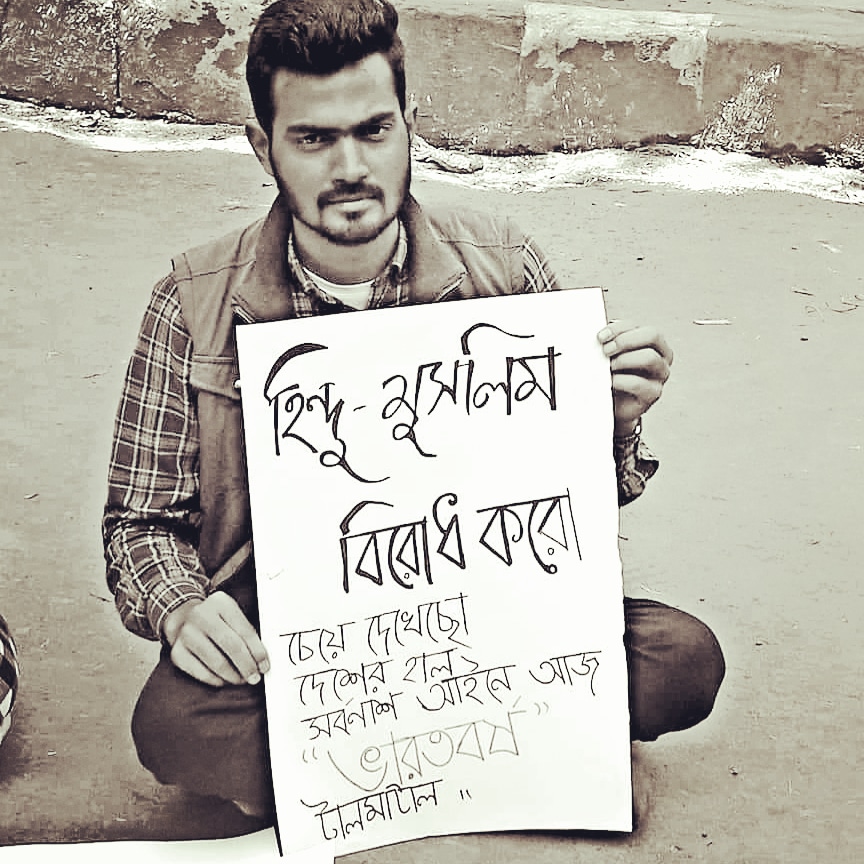 হিন্দু - মুসলিম
বিরোধ করো
চেয়ে দেখেছো
দেশের হাল,
সর্বনাশ আইনে আজ
“ভারতবর্ষ”
টালমাটাল ॥